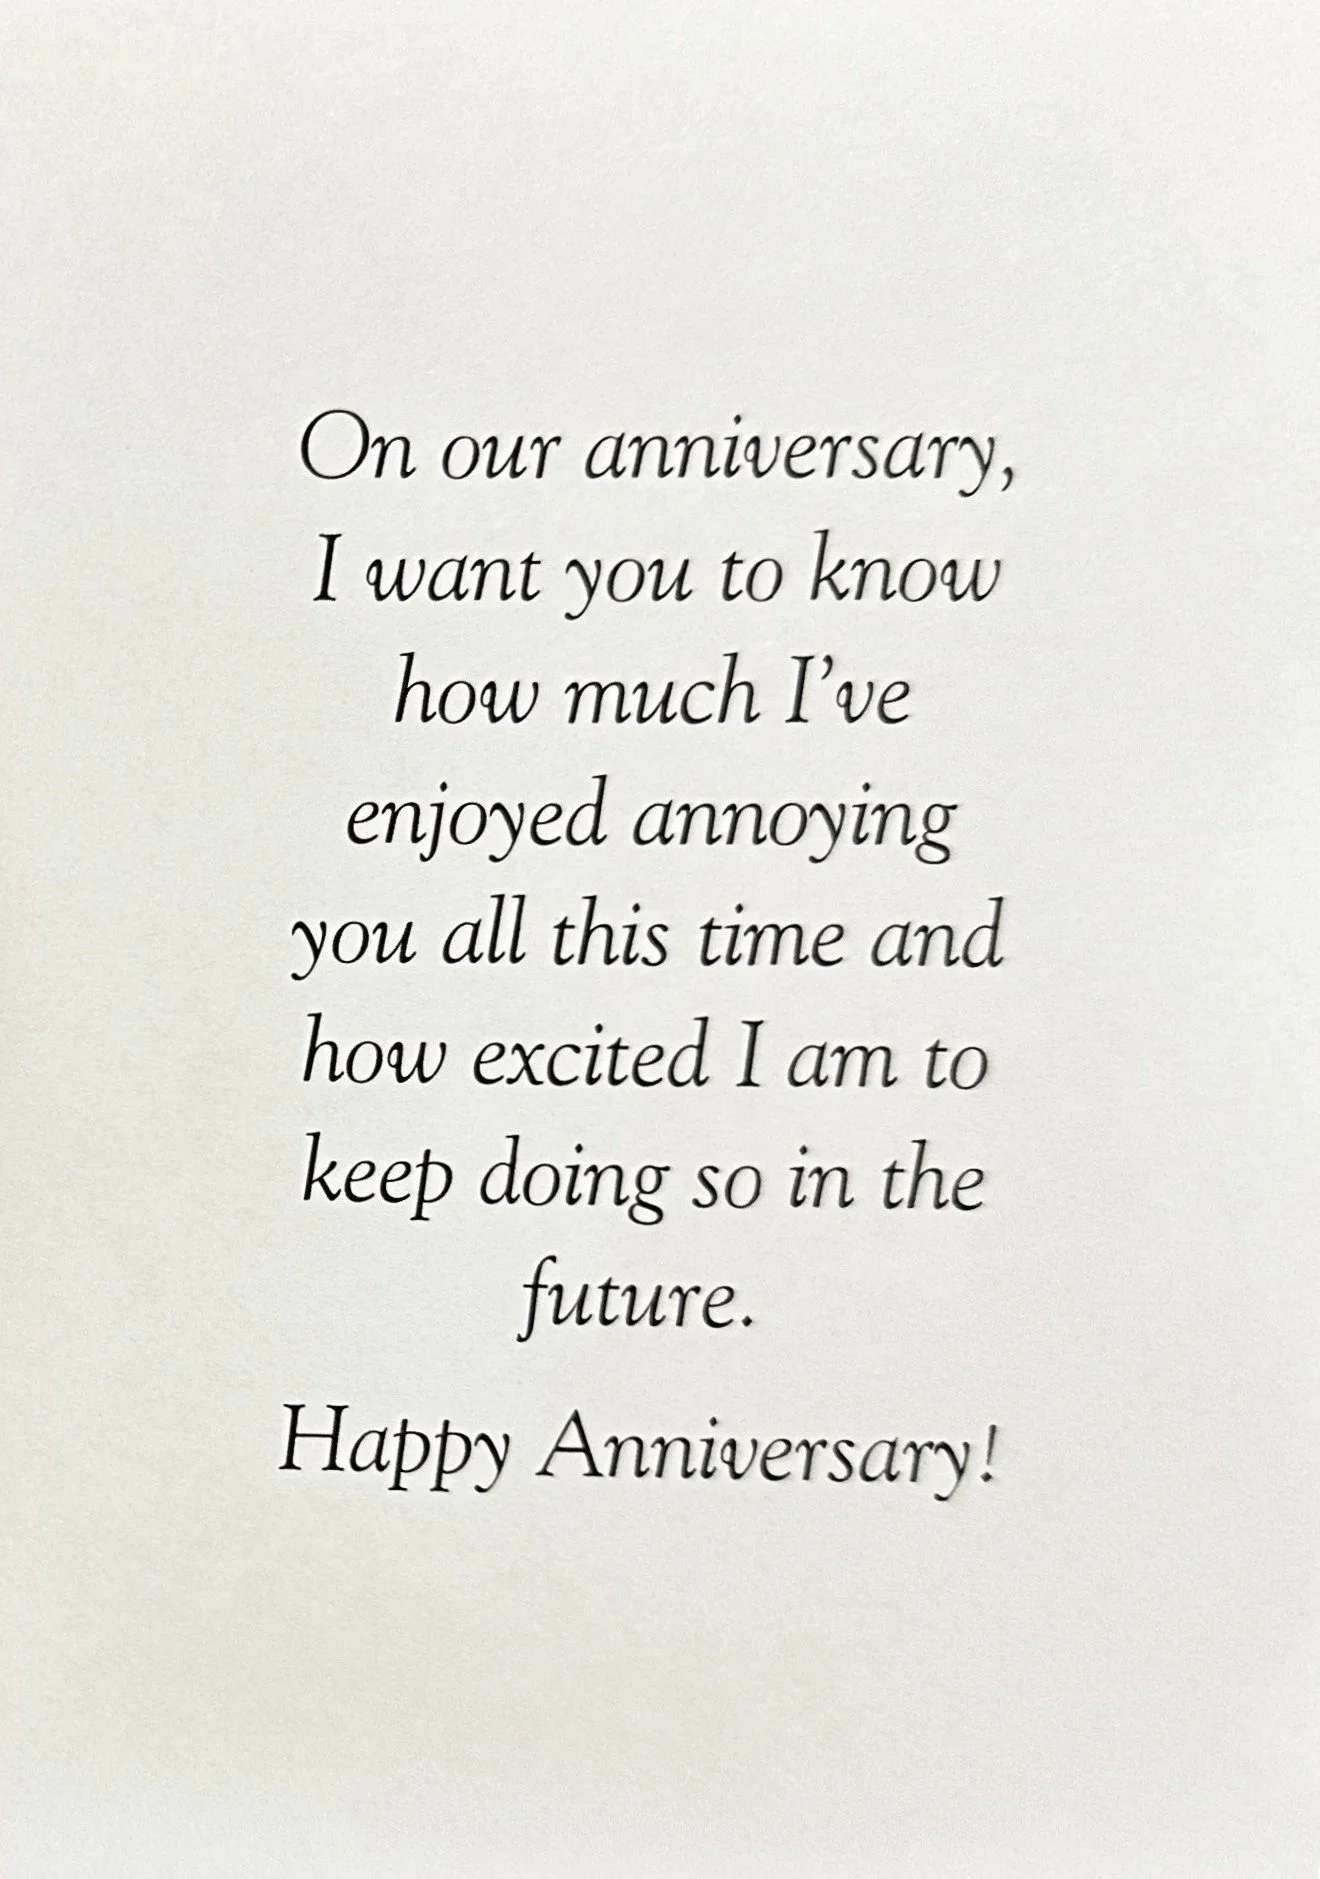 On our anniversary,
I want you to know
how much I’ve
enjoyed annoying
you all this time and
how excited I am to
keep doing so in the
future.
Happy Anniversary!